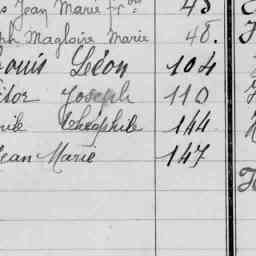 Jean Marie fr^ois 48
ph Magloire Marie 48.
ouis Léon 104
tor Joseph 110
rile Théophile 144
Jean Marie 147